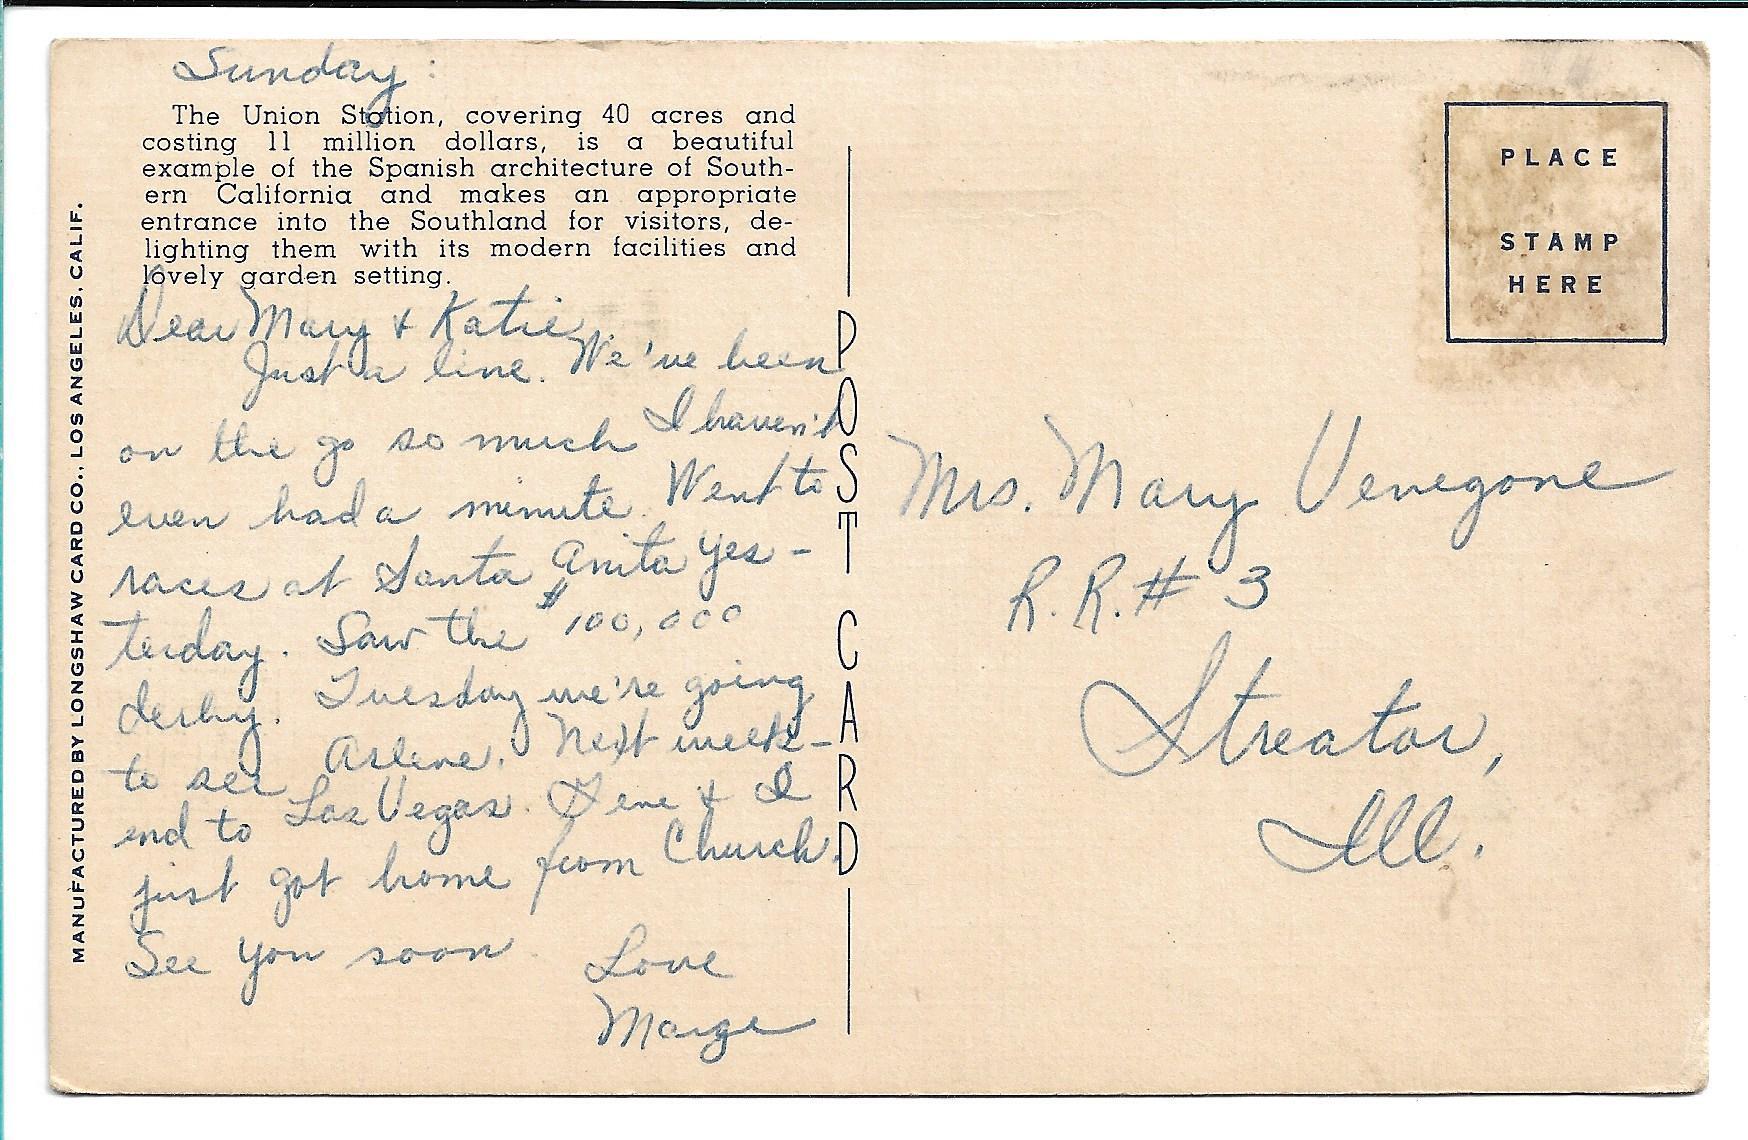 Sunday :
The Union Station, covering 40 acres and
costing 11 million dollars, is a beautiful
example of the Spanish architecture of South-
ern California and makes an appropriate
entrance into the Southland for visitors, de-
lighting them with its modern facilities and
lovely garden setting.
Dear Mary & Katie,
Just a line. We've been
on the go so much I haven't
even had a minute. Went to
races at Santa Anita yes-
terday. Saw the $100,000
derby. Tuesday we're going
to see Arlene. Next week-
end to Las Vegas. Gene & I
just got home from Church.
See you soon.
Love
Marge
MANUFACTURED BY LONGSHAW CARD CO., LOS ANGELES, CALIF.
POST CARD
PLACE
STAMP
HERE
Mrs. Mary Venegone
R.R. # 3
Streator,
Ill.